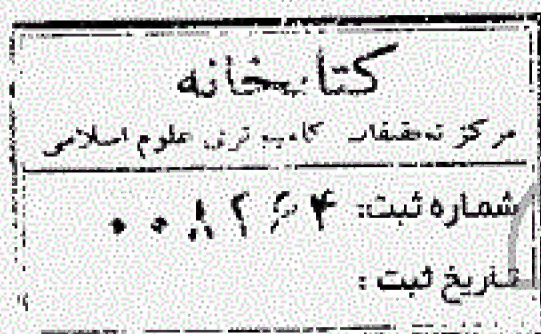 کتابخانه
مرکز تحقیقات کامپیوتری علوم اسلامی
شماره ثبت: ۰۰۸۲۶۴
تاریخ ثبت: